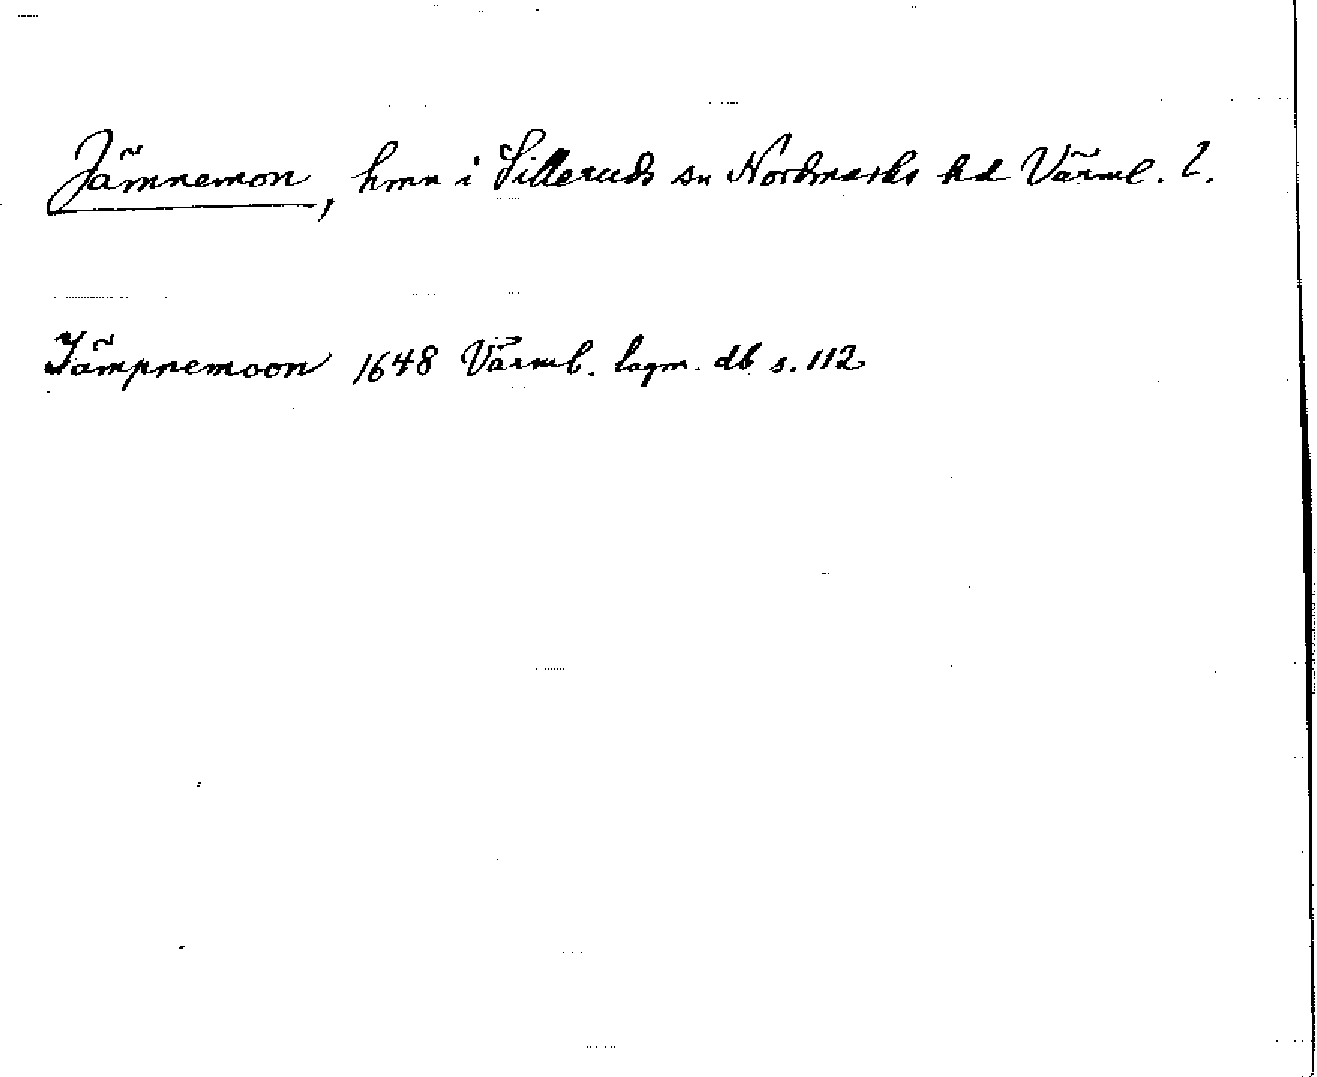 Jämnemon, hmn i Silleruds sn Nordmarks hd Värml. l.
Jämpnemoon 1648 Värml. lagm. db s. 112